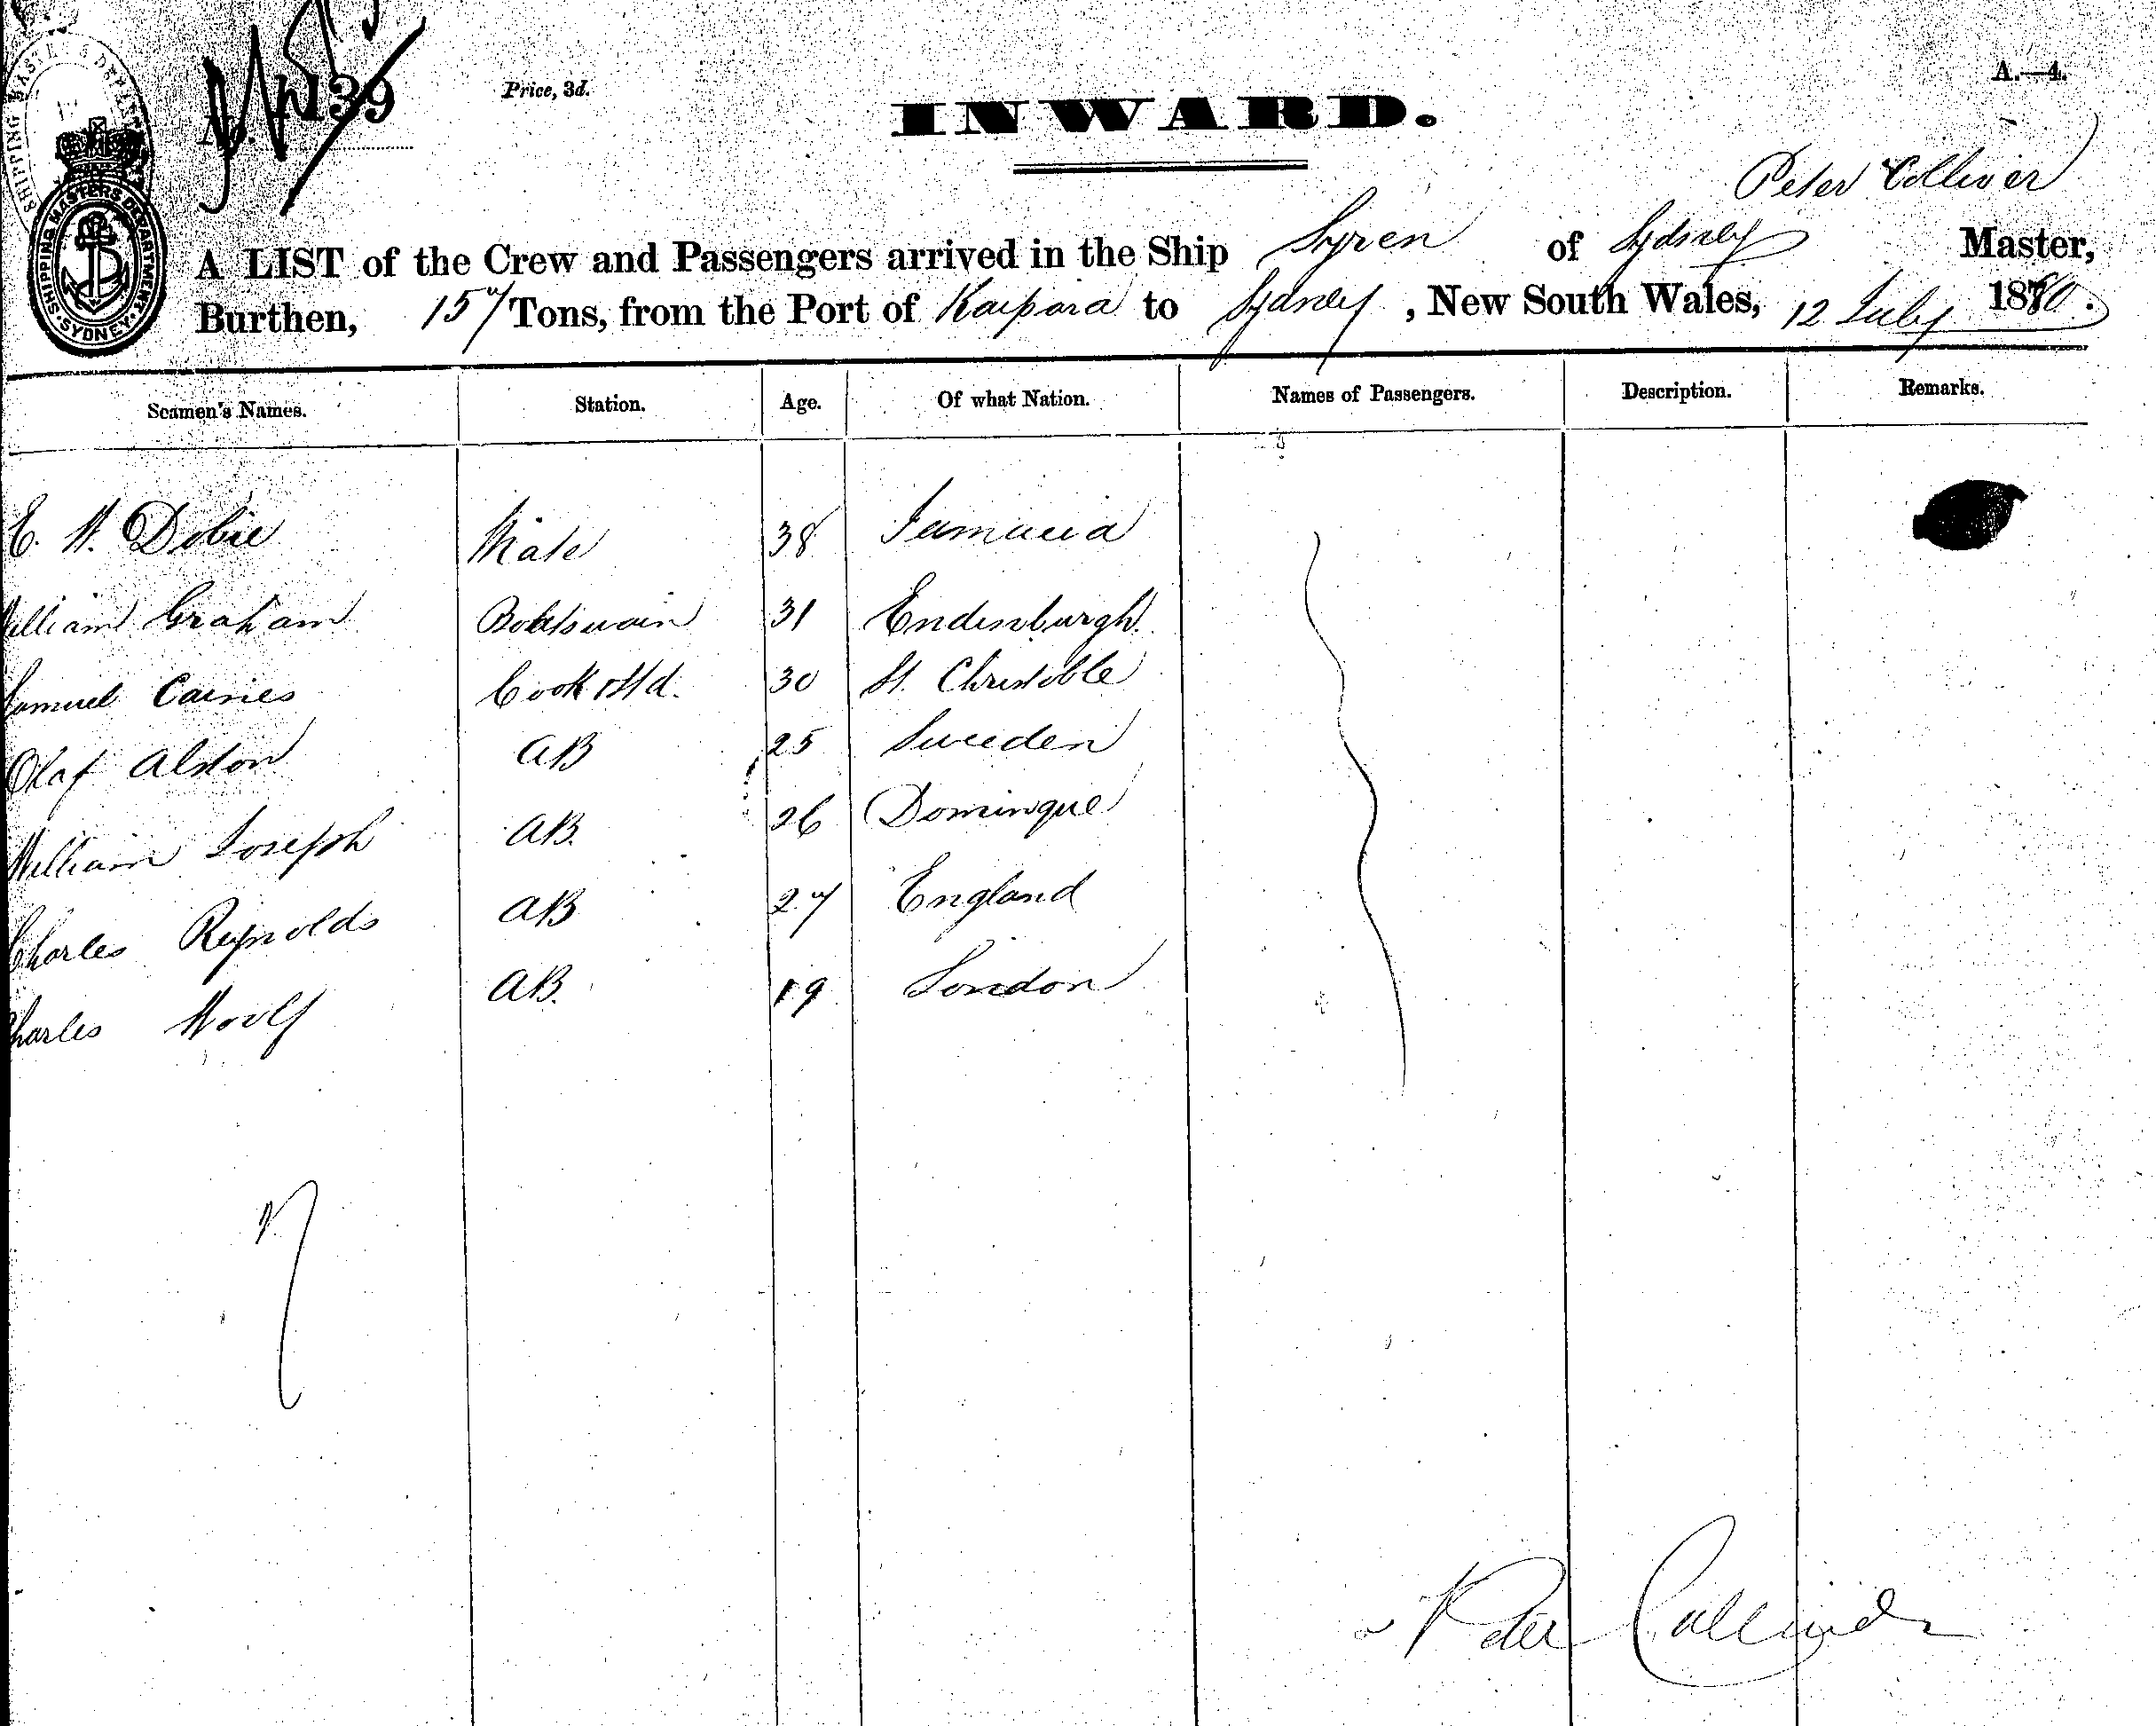 SHIPPING MASTER'S DEPARTMENT
SHIPPING MASTERS DEPARTMENT · SYDNEY ·
No. 139 Price, 3d. A.—4.
INWARD.
Peter Colliver
A LIST of the Crew and Passengers arrived in the Ship Syren of Sydney Master,
Burthen, 157 Tons, from the Port of Kaipara to Sydney, New South Wales, 12 July 1880.
Seamen's Names. Station. Age. Of what Nation. Names of Passengers. Description. Remarks.
E. W. Dobie Mate 38 Jamacia
William Graham Boatswain 31 Endinburgh.
Samuel Caines Cook & Std. 30 St. Christoble
Olaf Alston AB 25 Sweeden
William Joseph AB. 26 Dominque
Charles Reynolds AB 27 England
Charles Woolf AB. 19 London
7
Peter Colliver